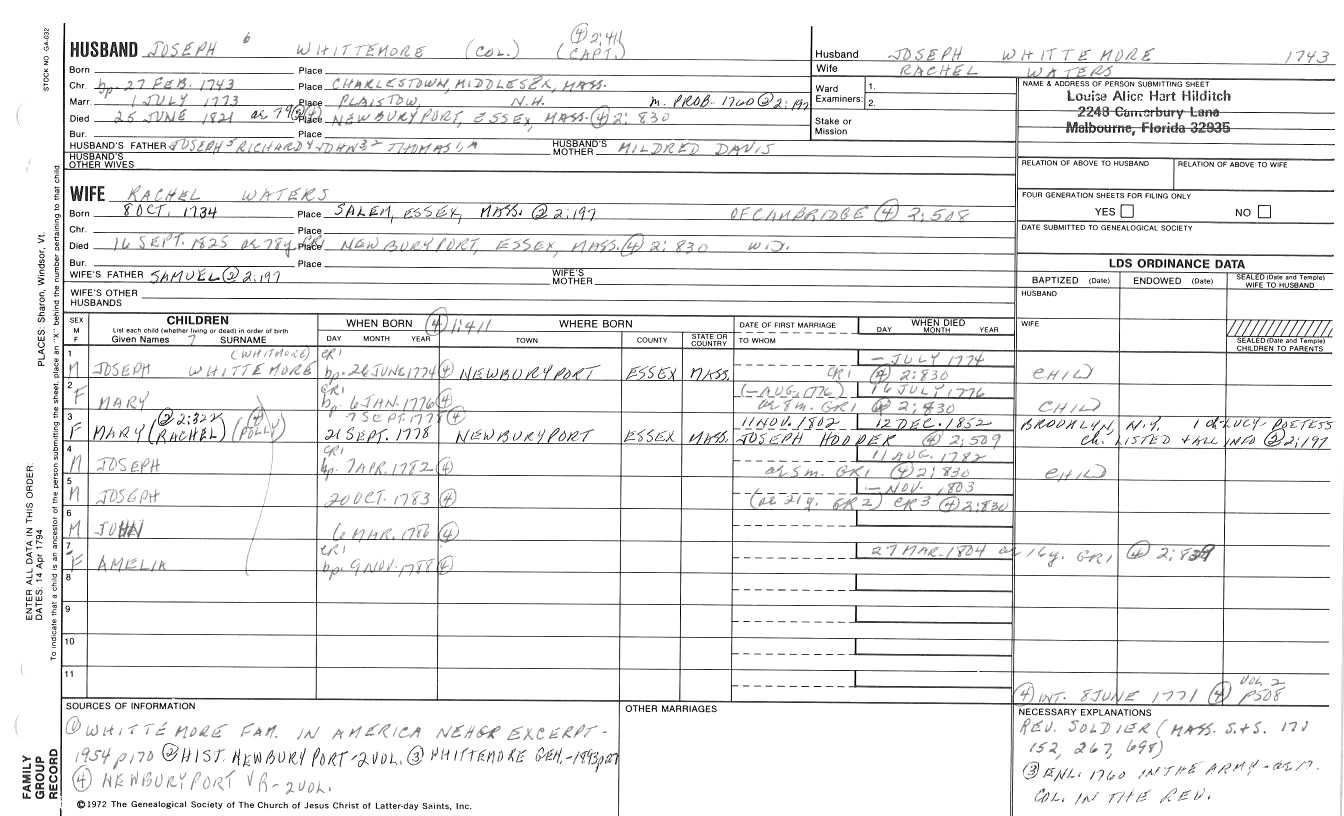 STOCK NO GA-032
HUSBAND JOSEPH 6 WHITTEMORE (COL.) (CAPT.) ④ 2:411
Born Place
Chr. bp. 27 FEB. 1743 Place CHARLESTOWN, MIDDLESEX, MASS.
Marr. 1 JULY 1773 Place PLAISTOW, N.H. m. PROB. 1760 ② 2:197
Died 25 JUNE 1821 Place NEWBURYPORT, ESSEX, MASS. ④ 2:830
Bur. Place
HUSBAND'S FATHER JOSEPH 5 RICHARD 4 JOHN 3 2 THOMAS 1 HUSBAND'S MOTHER MILDRED DAVIS
HUSBAND'S OTHER WIVES
Husband JOSEPH WHITTEMORE 1743
Wife RACHEL WATERS
Ward Examiners: 1.
2.
Stake or Mission
NAME & ADDRESS OF PERSON SUBMITTING SHEET
Louise Alice Hart Hilditch
2243 Canterbury Lane
Melbourne, Florida 32935
RELATION OF ABOVE TO HUSBAND RELATION OF ABOVE TO WIFE
FOUR GENERATION SHEETS FOR FILING ONLY
YES NO
DATE SUBMITTED TO GENEALOGICAL SOCIETY
WIFE RACHEL WATERS
Born 8 OCT. 1734 Place SALEM, ESSEX, MASS. ② 2:197 OF CAMBRIDGE ④ 2:508
Chr. Place
Died 16 SEPT. 1825 ae 78y. Place NEWBURYPORT, ESSEX, MASS. ④ 2:830 WID.
Bur. Place
WIFE'S FATHER SAMUEL ② 2:197 WIFE'S MOTHER
WIFE'S OTHER HUSBANDS
LDS ORDINANCE DATA
BAPTIZED (Date) ENDOWED (Date) SEALED (Date and Temple) WIFE TO HUSBAND
HUSBAND
WIFE
SEALED (Date and Temple) CHILDREN TO PARENTS
SEX M F CHILDREN WHEN BORN ④ 1:411 WHERE BORN DATE OF FIRST MARRIAGE WHEN DIED
List each child (whether living or dead) in order of birth
Given Names 7 SURNAME DAY MONTH YEAR TOWN COUNTY STATE OR COUNTRY TO WHOM DAY MONTH YEAR
1 (WHITMORE) CR1 — JULY 1774
M JOSEPH WHITTEMORE bp. 26 JUNE 1774 ④ NEWBURYPORT ESSEX MASS. CR1 ④ 2:830 CHILD
2 CR1 (— AUG. 1776) 16 JULY 1776
F MARY bp. 6 JAN. 1776 ④ ae 8m. GR1 ④ 2:830 CHILD
3 ② 2:322 ④ 7 SEPT. 1778 ④ 11 NOV. 1802 12 DEC. 1852 BROOKLYN, N.Y. 1 d-LUCY-POETESS
F MARY (RACHEL) (POLLY) 21 SEPT. 1778 NEWBURYPORT ESSEX MASS. JOSEPH HOOPER ④ 2:509 ch. LISTED + ALL INFO ② 2:197
4 CR1 11 AUG. 1782
M JOSEPH bp. 7 APR. 1782 ④ ae 5m. GR1 ④ 2:830 CHILD
5 — NOV. 1803
M JOSEPH 20 OCT. 1783 ④ (ae 21y. GR2) CR3 ④ 2:830
6
M JOHN 6 MAR. 1786 ④
7 CR1 27 MAR. 1804 ae 16y. GR1 ④
F AMELIA bp. 9 NOV. 1788 ④
8
9
10
11
④ INT. 8 JUNE 1771 ④ VOL 2 P508
SOURCES OF INFORMATION
① WHITTEMORE FAM. IN AMERICA NEHGR EXCERPT -
1954 p170 ② HIST. NEWBURYPORT - 2 VOL. ③ WHITTEMORE GEN. - 1893
④ NEWBURYPORT VR - 2 VOL.
OTHER MARRIAGES
NECESSARY EXPLANATIONS
REV. SOLDIER (MASS. S.+S.
152, 267, 698)
③ ENL. 1760 IN THE ARMY -
COL. IN THE REV.
©1972 The Genealogical Society of The Church of Jesus Christ of Latter-day Saints, Inc.
FAMILY GROUP RECORD
ENTER ALL DATA IN THIS ORDER:
DATES: 14 Apr 1794 PLACES: Sharon, Windsor, Vt.
To indicate that a child is an ancestor of the person submitting the sheet, place an "X" behind the number pertaining to that child